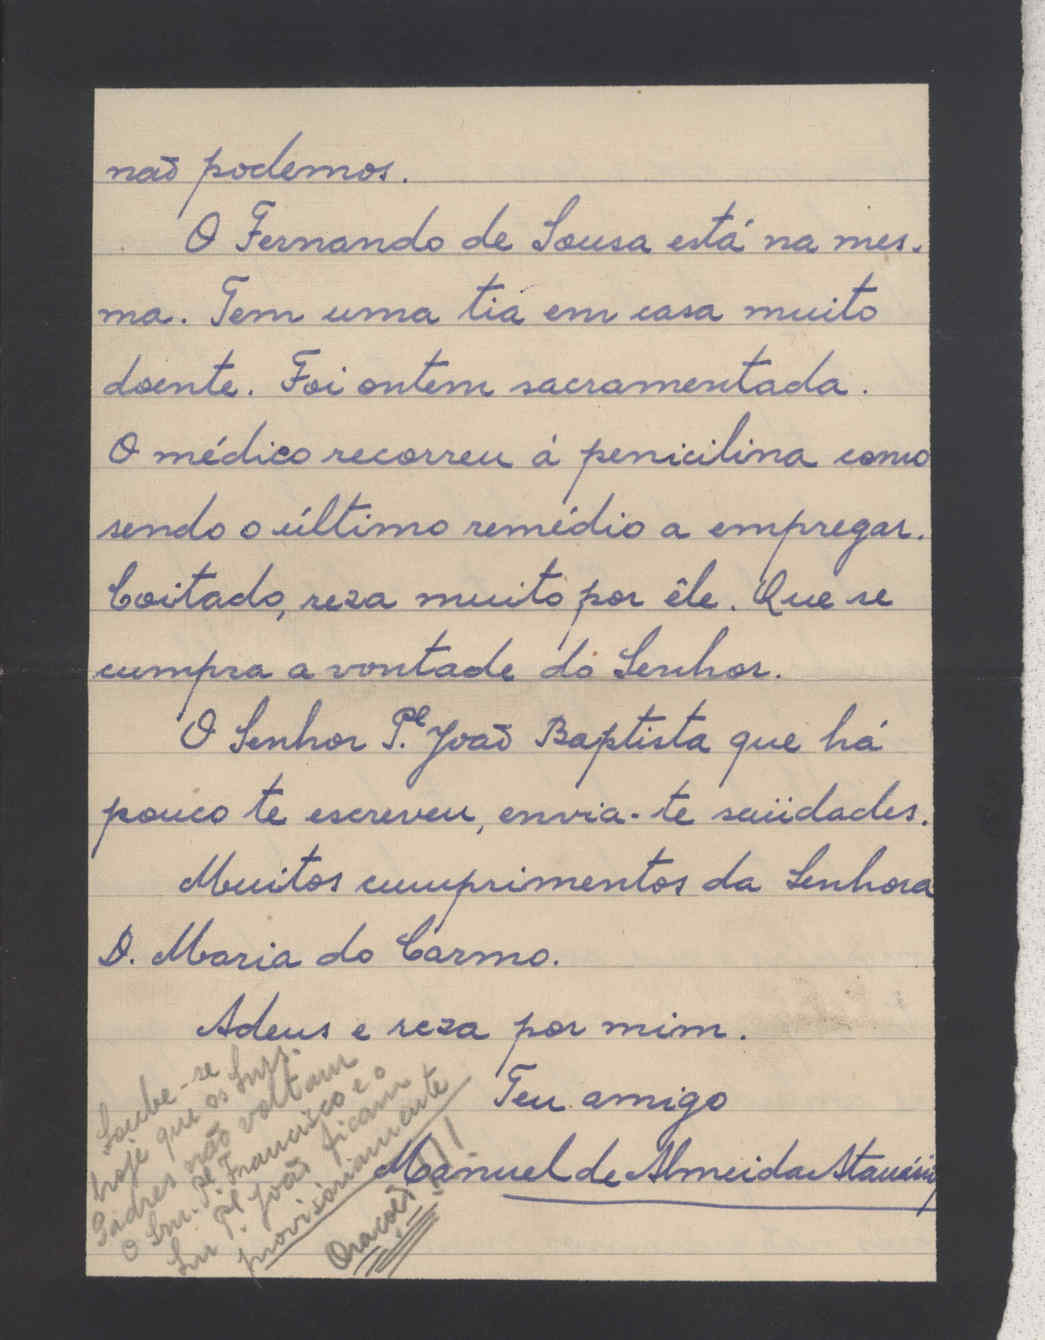 não podemos.
O Fernando de Sousa está na mes-
ma. Tem uma tia em casa muito
doente. Foi ontem sacramentada.
O médico recorreu á penicilina como
sendo o último remédio a empregar.
Coitado, reza muito por êle. Que se
cumpra a vontade do Senhor.
O Senhor P.e João Baptista que há
pouco te escreveu, envia-te saüdades.
Muitos cumprimentos da Senhora
D. Maria do Carmo.
Adeus e reza por mim.
Teu amigo
Manuel de Almeida
Soube-se
hoje que os Snrs.
Padres não voltam
O Snr. P.e Francisco e o
Snr P.e João ficam
provisoriamente
Orações!!!